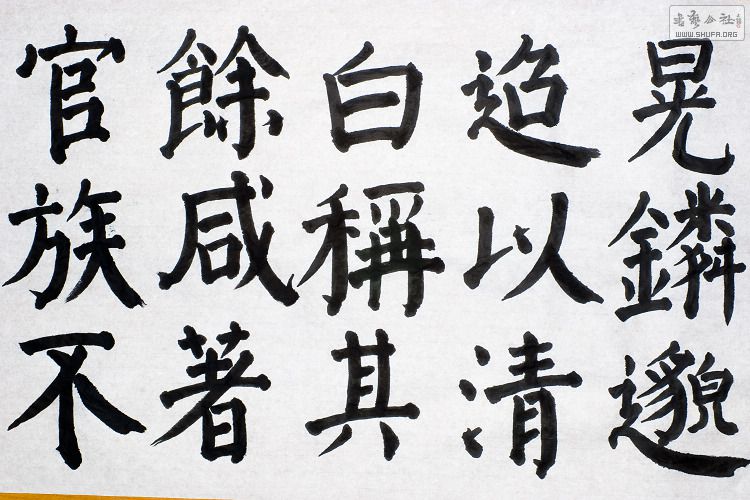 晃鏻邈
迢以清
白稱其
餘咸著
官族不
书艺公社
WWW.SHUFA.ORG